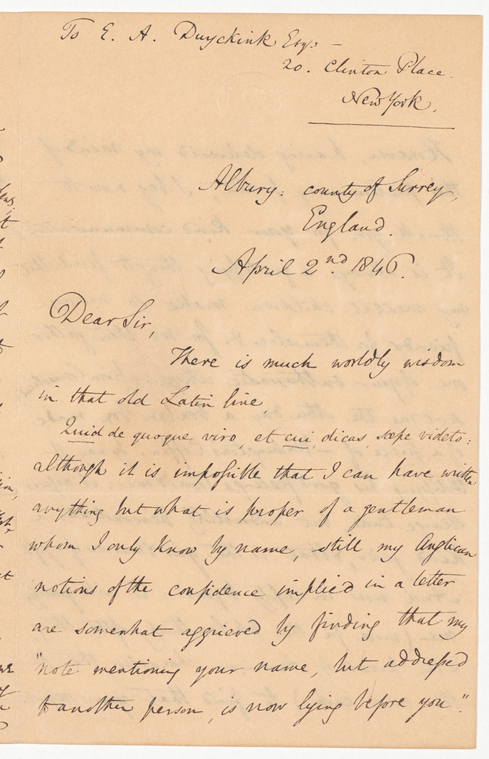 To E. A. Duyckink Esq: —
20. Clinton Place.
New York.
Albury: county of Surrey,
England.
April 2nd. 1846.
Dear Sir,
There is much worldly wisdom
in that old Latin line
Quid de quoque viro, et cui, dicas sæpe videto:
although it is impossible that I can have written
anything but what is proper of a gentleman
whom I only know by name, still my Anglican
notions of the confidence implied in a letter
are somewhat aggrieved by finding that my
"note mentioning your name, but addressed
to another person, is now lying before you".